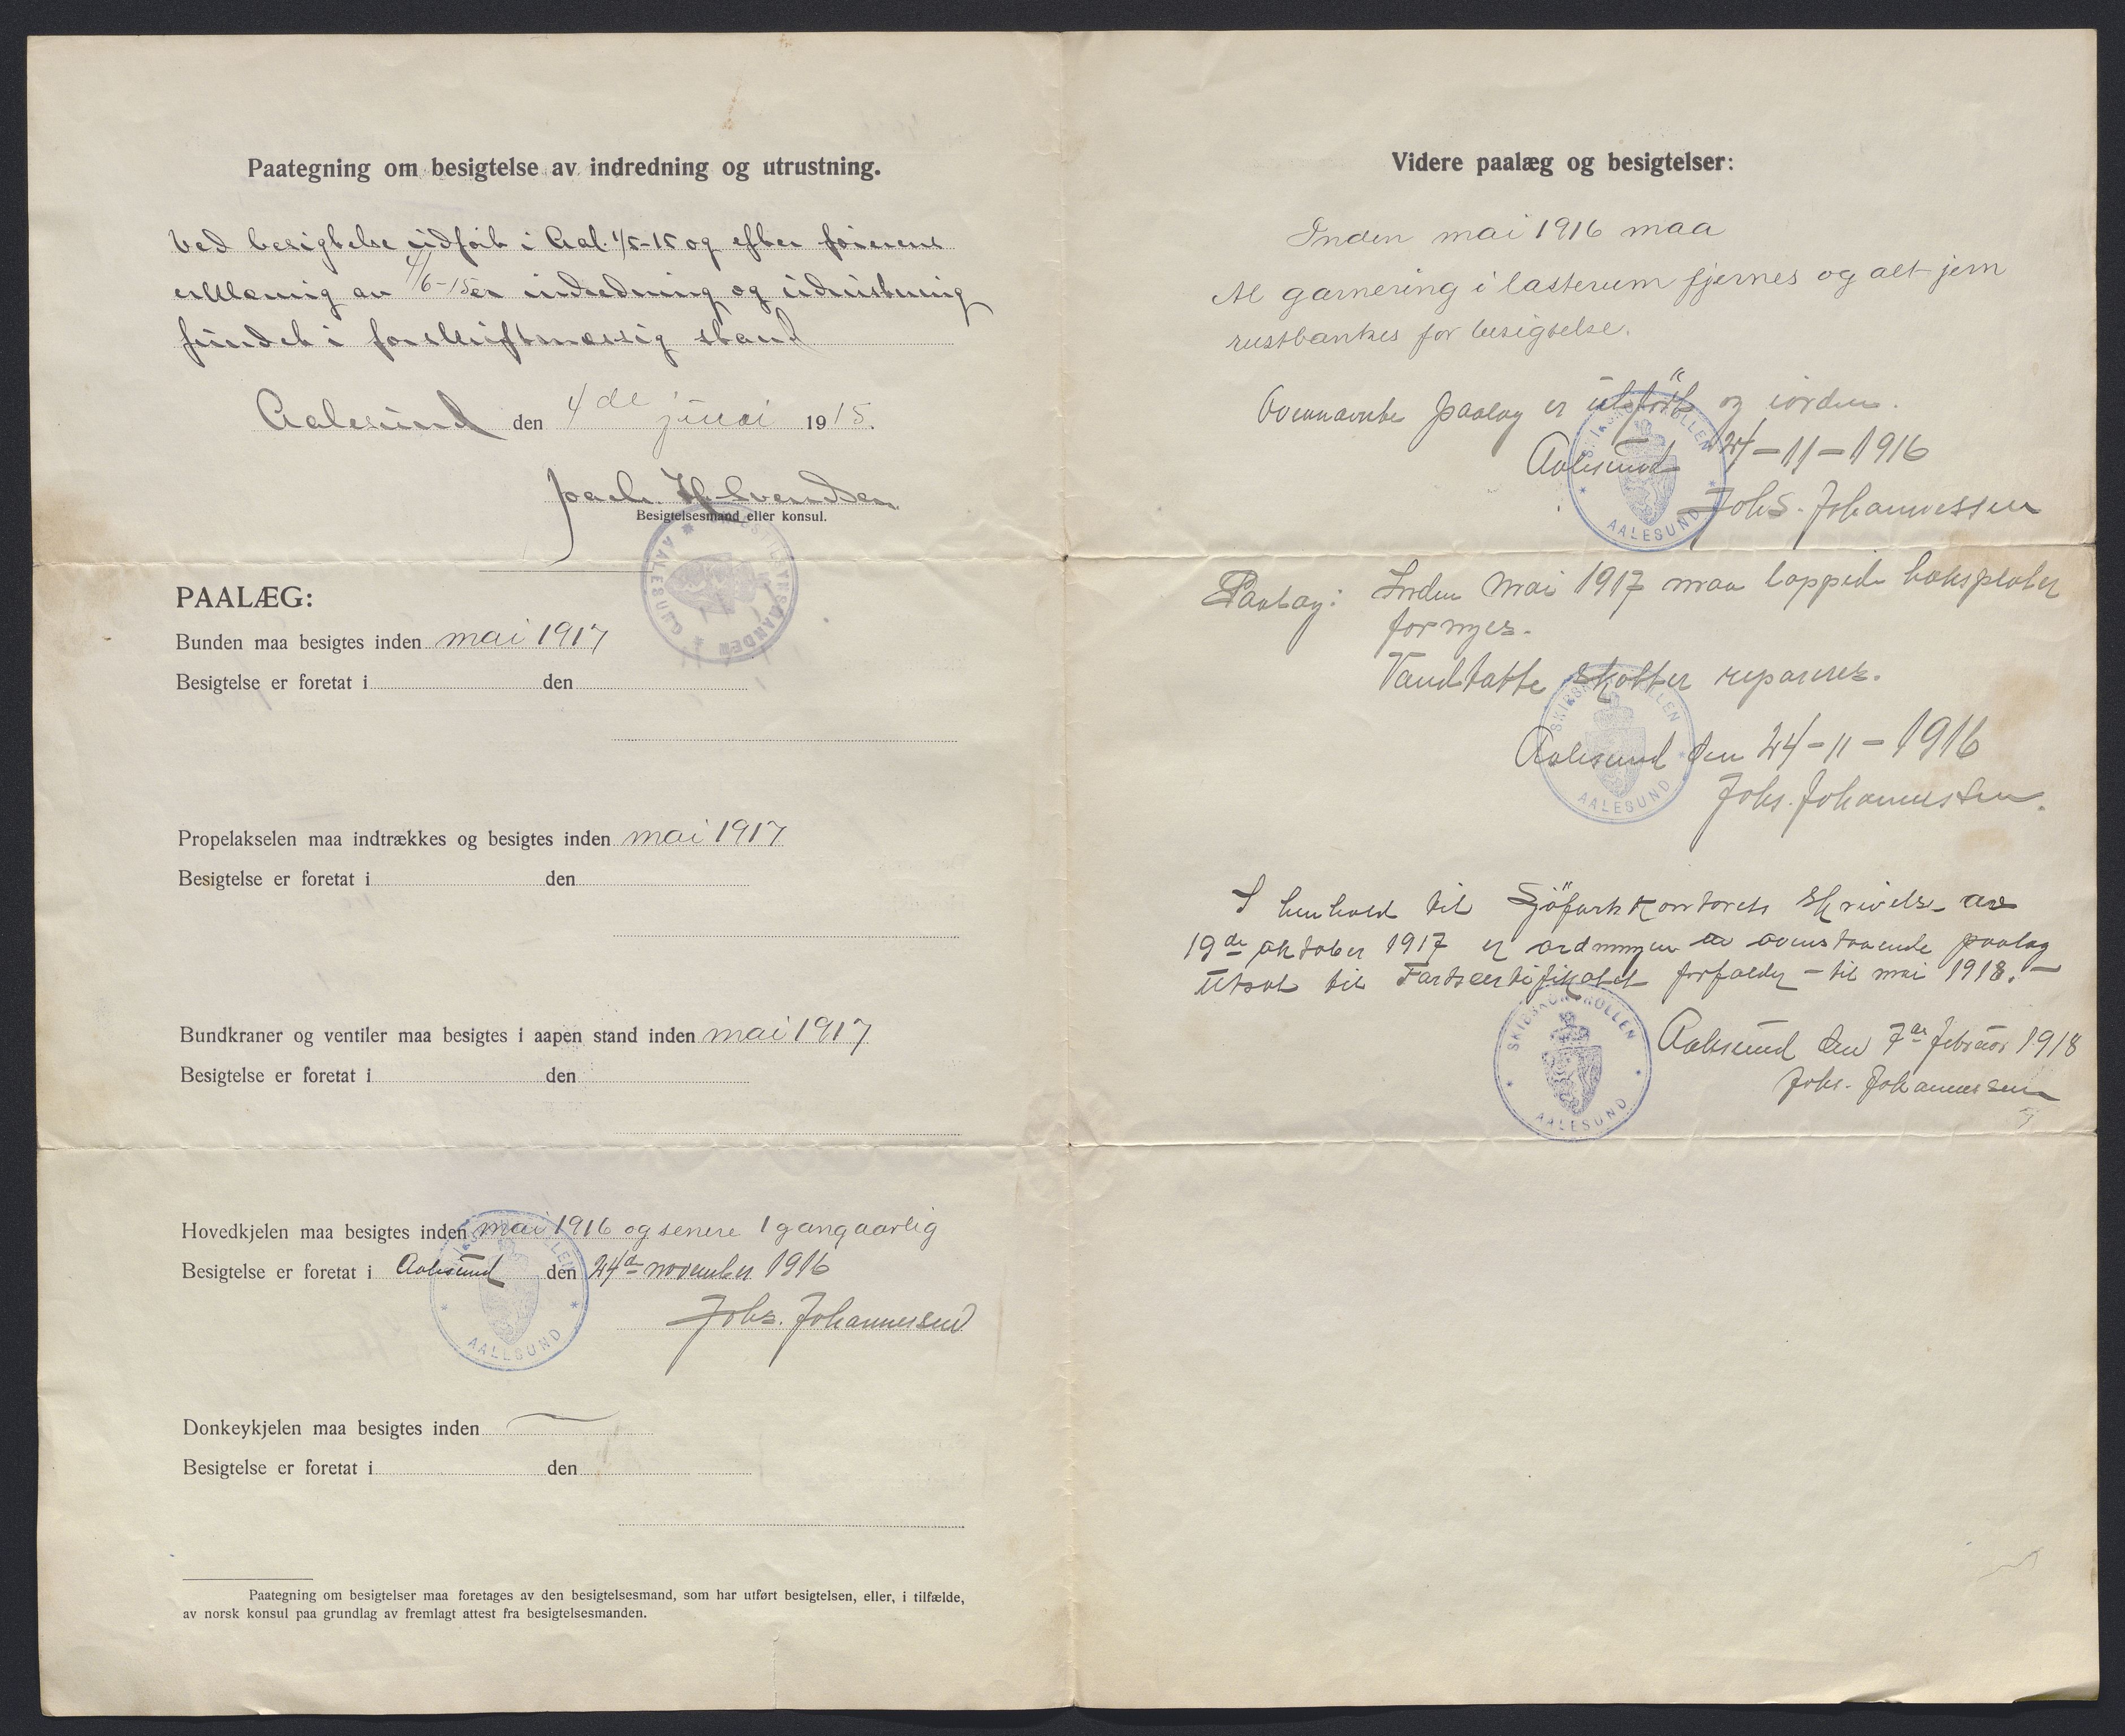 Paategning om besigtelse av indredning og utrustning.
Ved besigtelse udført i Aal. 1/5-15 og efter førerens
erklæring av 4/6-15 er indredning og udrustning
fundet i forskriftmæssig stand
Aalesund den 4de juni 1915.
Joach. H. Svendsen
Besigtelsesmand eller konsul.
AALESUND
PAALÆG:
Bunden maa besigtes inden mai 1917
Besigtelse er foretat i den
Propelakselen maa indtrækkes og besigtes inden mai 1917
Besigtelse er foretat i den
Bundkraner og ventiler maa besigtes i aapen stand inden mai 1917
Besigtelse er foretat i den
Hovedkjelen maa besigtes inden mai 1916 og senere 1 gang aarlig
Besigtelse er foretat i Aalesund den 24de november 1916
AALESUND
Johs. Johannessen
Donkeykjelen maa besigtes inden
Besigtelse er foretat i den
Paategning om besigtelser maa foretages av den besigtelsesmand, som har utført besigtelsen, eller, i tilfælde,
av norsk konsul paa grundlag av fremlagt attest fra besigtelsesmanden.
Videre paalæg og besigtelser:
Inden mai 1916 maa
Al garnering i lasterum fjernes og alt jern
rustbankes for besigtelse.
Ovennævnte paalæg er utført og iorden.
Aalesund 24-11-1916
Johs. Johannessen
SKIBSKONTROLLEN
AALESUND
Paalæg: Inden Mai 1917 maa lappede dæksplater
fornyes.
Vandtætte skotter repareres.
Aalesund den 24-11-1916
Johs. Johannessen.
SKIBSKONTROLLEN
AALESUND
I henhold til Sjöfartskontorets skrivelse av
19de oktober 1917 er ordningen av ovenstaaende paalæg
utsat til Fartscertifikatet forfalder - til mai 1918. -
Aalesund den 7de februar 1918
Johs. Johannessen
SKIBSKONTROLLEN
AALESUND